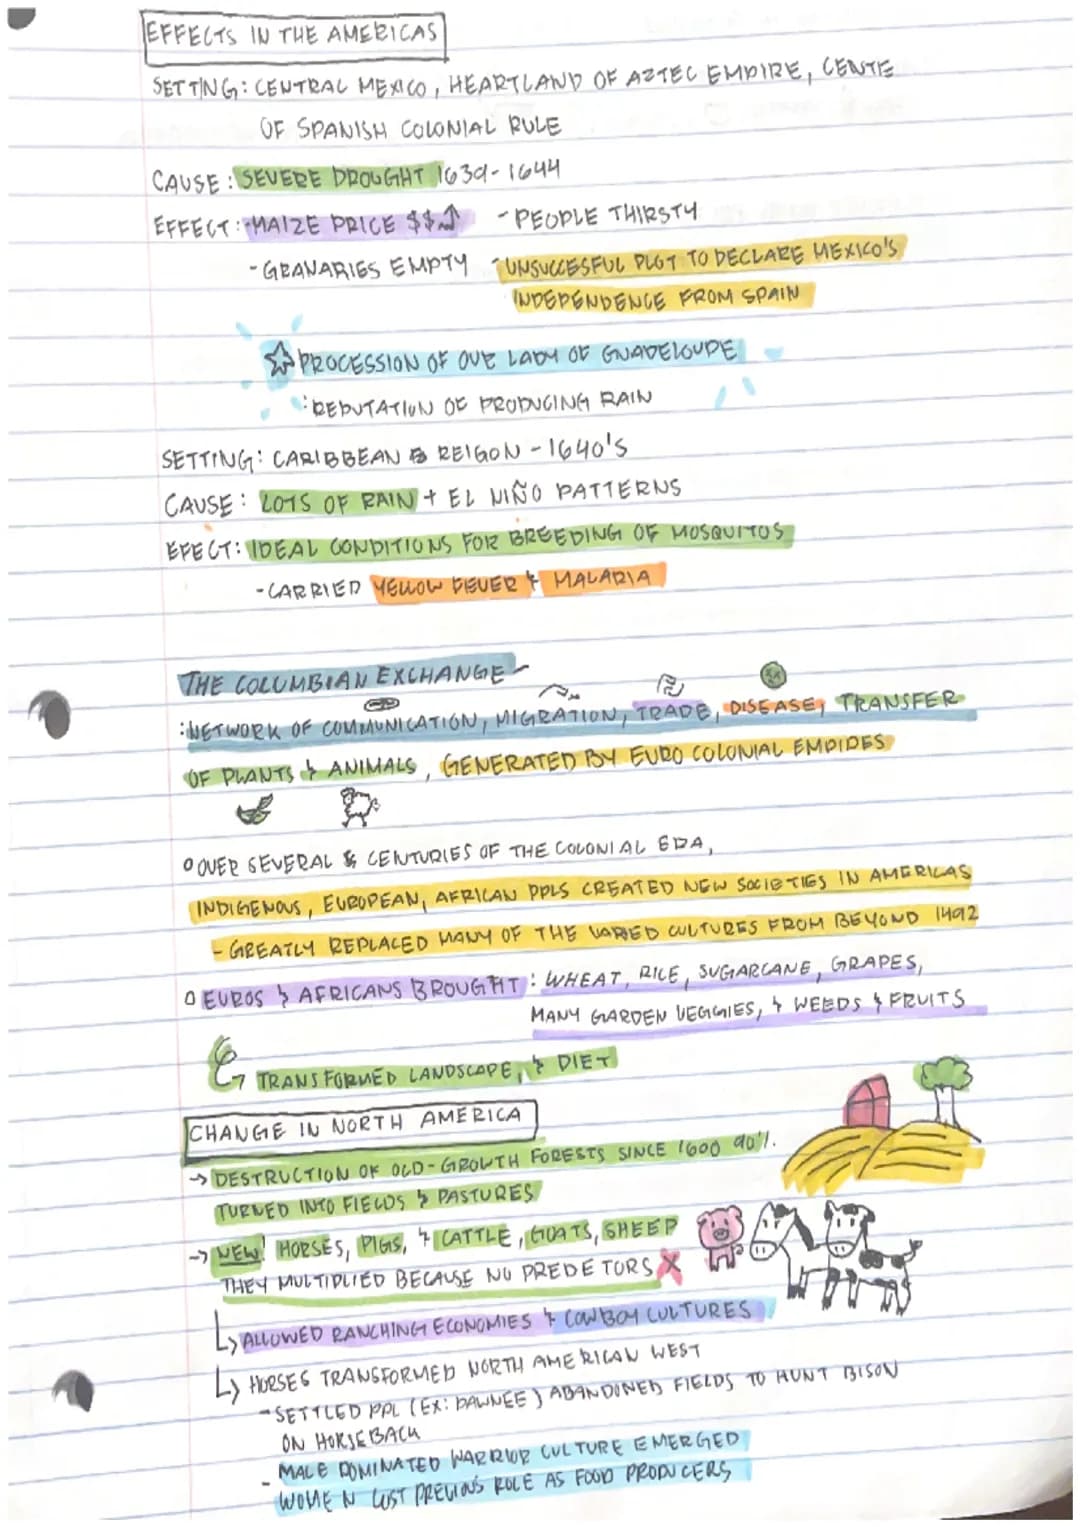 EFFECTS IN THE AMERICAS
SETTING: CENTRAL MEXICO, HEARTLAND OF AZTEC EMPIRE, CENTE
OF SPANISH COLONIAL RULE
CAUSE: SEVERE DROUGHT 1639-1644
EFFECT: -MAIZE PRICE $$↑ - PEOPLE THIRSTY
- GRANARIES EMPTY - UNSUCCESFUL PLOT TO DECLARE MEXICO'S
INDEPENDENCE FROM SPAIN
☆ PROCESSION OF OUR LADY OF GUADELOUPE
: REPUTATION OF PRODUCING RAIN
SETTING: CARIBBEAN REIGON - 1640'S
CAUSE: LOTS OF RAIN + EL NIÑO PATTERNS
EFFECT: IDEAL CONDITIONS FOR BREEDING OF MOSQUITOS
- CARRIED YELLOW FEVER & MALARIA
THE COLUMBIAN EXCHANGE -
: NETWORK OF COMMUNICATION, MIGRATION, TRADE, DISEASE, TRANSFER
OF PLANTS & ANIMALS, GENERATED BY EURO COLONIAL EMPIRES
o OVER SEVERAL CENTURIES OF THE COLONIAL ERA,
INDIGENOUS, EUROPEAN, AFRICAN PPLS CREATED NEW SOCIETIES IN AMERICAS
- GREATLY REPLACED MANY OF THE VARIED CULTURES FROM BEYOND 1492
o EUROS & AFRICANS BROUGHT: WHEAT, RICE, SUGARCANE, GRAPES,
MANY GARDEN VEGGIES, & WEEDS & FRUITS
→ TRANSFORMED LANDSCAPE, & DIET
CHANGE IN NORTH AMERICA
→ DESTRUCTION OF OLD-GROWTH FORESTS SINCE 1600 90%
TURNED INTO FIELDS & PASTURES
→ NEW! HORSES, PIGS, & CATTLE, GOATS, SHEEP
THEY MULTIPLIED BECAUSE NO PREDETORS X
↳ ALLOWED RANCHING ECONOMIES & COWBOY CULTURES
↳ HORSES TRANSFORMED NORTH AMERICAN WEST
- SETTLED PPL (EX: PAWNEE) ABANDONED FIELDS TO HUNT BISON
ON HORSEBACK
- MALE DOMINATED WARRIOR CULTURE EMERGED
- WOMEN LOST PREVIOUS ROLE AS FOOD PRODUCERS